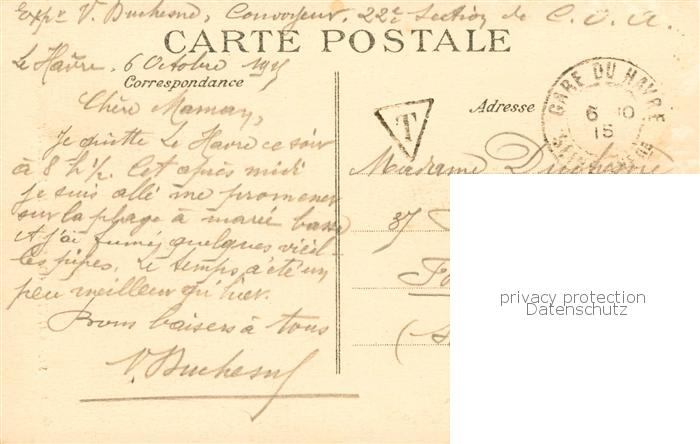 Expr V. Duchesne, Convoyeur, 22e Section de C.O.A.
CARTE POSTALE
Le Havre, 6 Octobre 1915
Correspondance
Adresse
GARE DU HAVRE
6 10
15
T
Chère Maman,
Je quitte Le Havre ce soir
à 8 h ½. Cet après midi
je suis allé me promener
sur la plage à marée basse
et j'ai fumé quelques vieil-
les pipes. Le temps a été un
peu meilleur qu'hier.
Bons baisers à tous
V. Duchesne
Madame Duchesne
37
privacy protection
Datenschutz